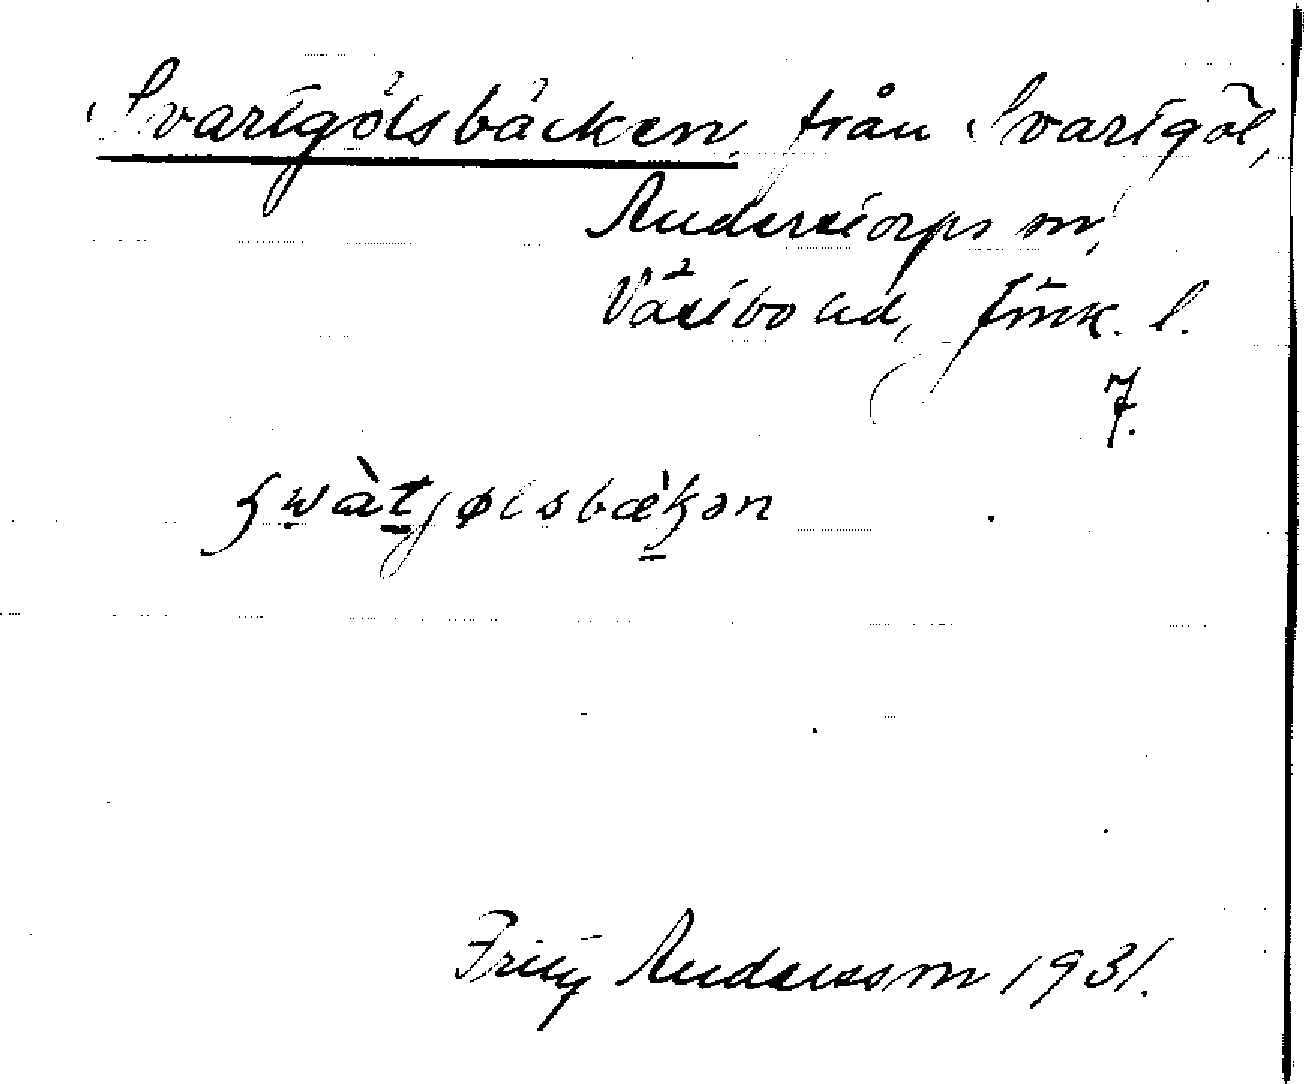 Svartgölsbäcken, från Svartgöl,
Anderstorps sn,
Västbo hd, Jönk. l.
7.
Fritz Andersson 1931.